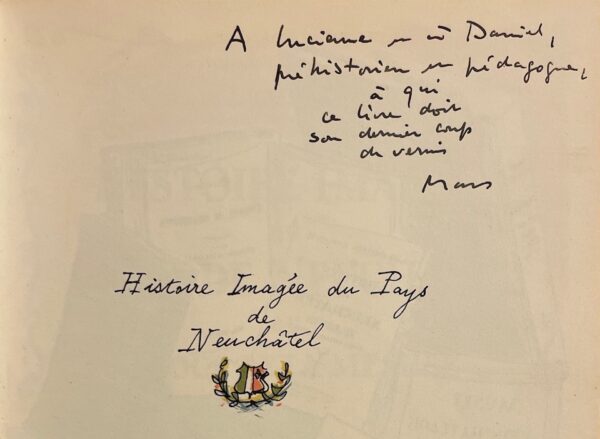 A Luciane et à Daniel,
préhistorien et pédagogue,
à qui
ce livre doit
son dernier coup
de vernis
Histoire Imagée du Pays
de
Neuchâtel